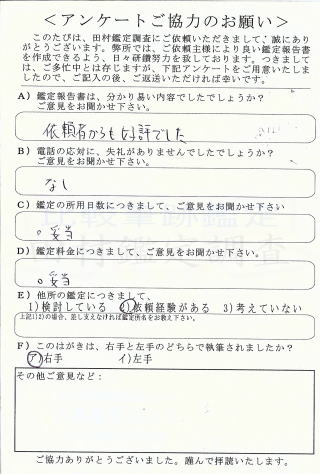 ＜アンケートご協力のお願い＞
このたびは、田村鑑定調査にご依頼いただきまして、誠にあり
がとうございます。弊所では、ご依頼主様により良い鑑定報告書
を作成できるよう、日々研鑽努力を致しております。つきまして
は、ご多忙中とは存じますが、下記アンケートをご用意いたしま
したので、ご記入の後、ご返送いただければ幸いです。
A）鑑定報告書は、分かり易い内容でしたでしょうか？
ご意見をお聞かせ下さい。
依頼者からも好評でした
B）電話の応対に、失礼がありませんでしたでしょうか？
ご意見をお聞かせ下さい。
なし
C）鑑定の所用日数につきまして、ご意見をお聞かせ下さい
。妥当
D）鑑定料金につきまして、ご意見をお聞かせ下さい。
。妥当
E）他所の鑑定につきまして、
1)検討している 2)依頼経験がある 3)考えていない
上記1)2)の場合、差し支えなければ鑑定所名をお教え下さい。
F）このはがきは、右手と左手のどちらで執筆されましたか？
ア)右手 イ)左手
その他ご意見など：
ご協力ありがとうございました。謹んで拝読いたします。